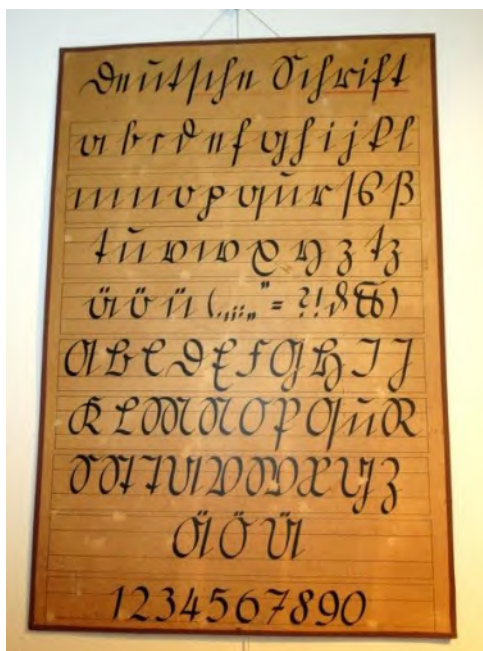 Deutsche Schrift
a b c d e f g h i j k l
m n o p qu r ſ s ß
t u v w x y z tz
ä ö ü (.,;:„" = ?!
A B C D E F G H I J
K L M N O P Qu R
S St T U V W X Y Z
Ä Ö Ü
1234567890